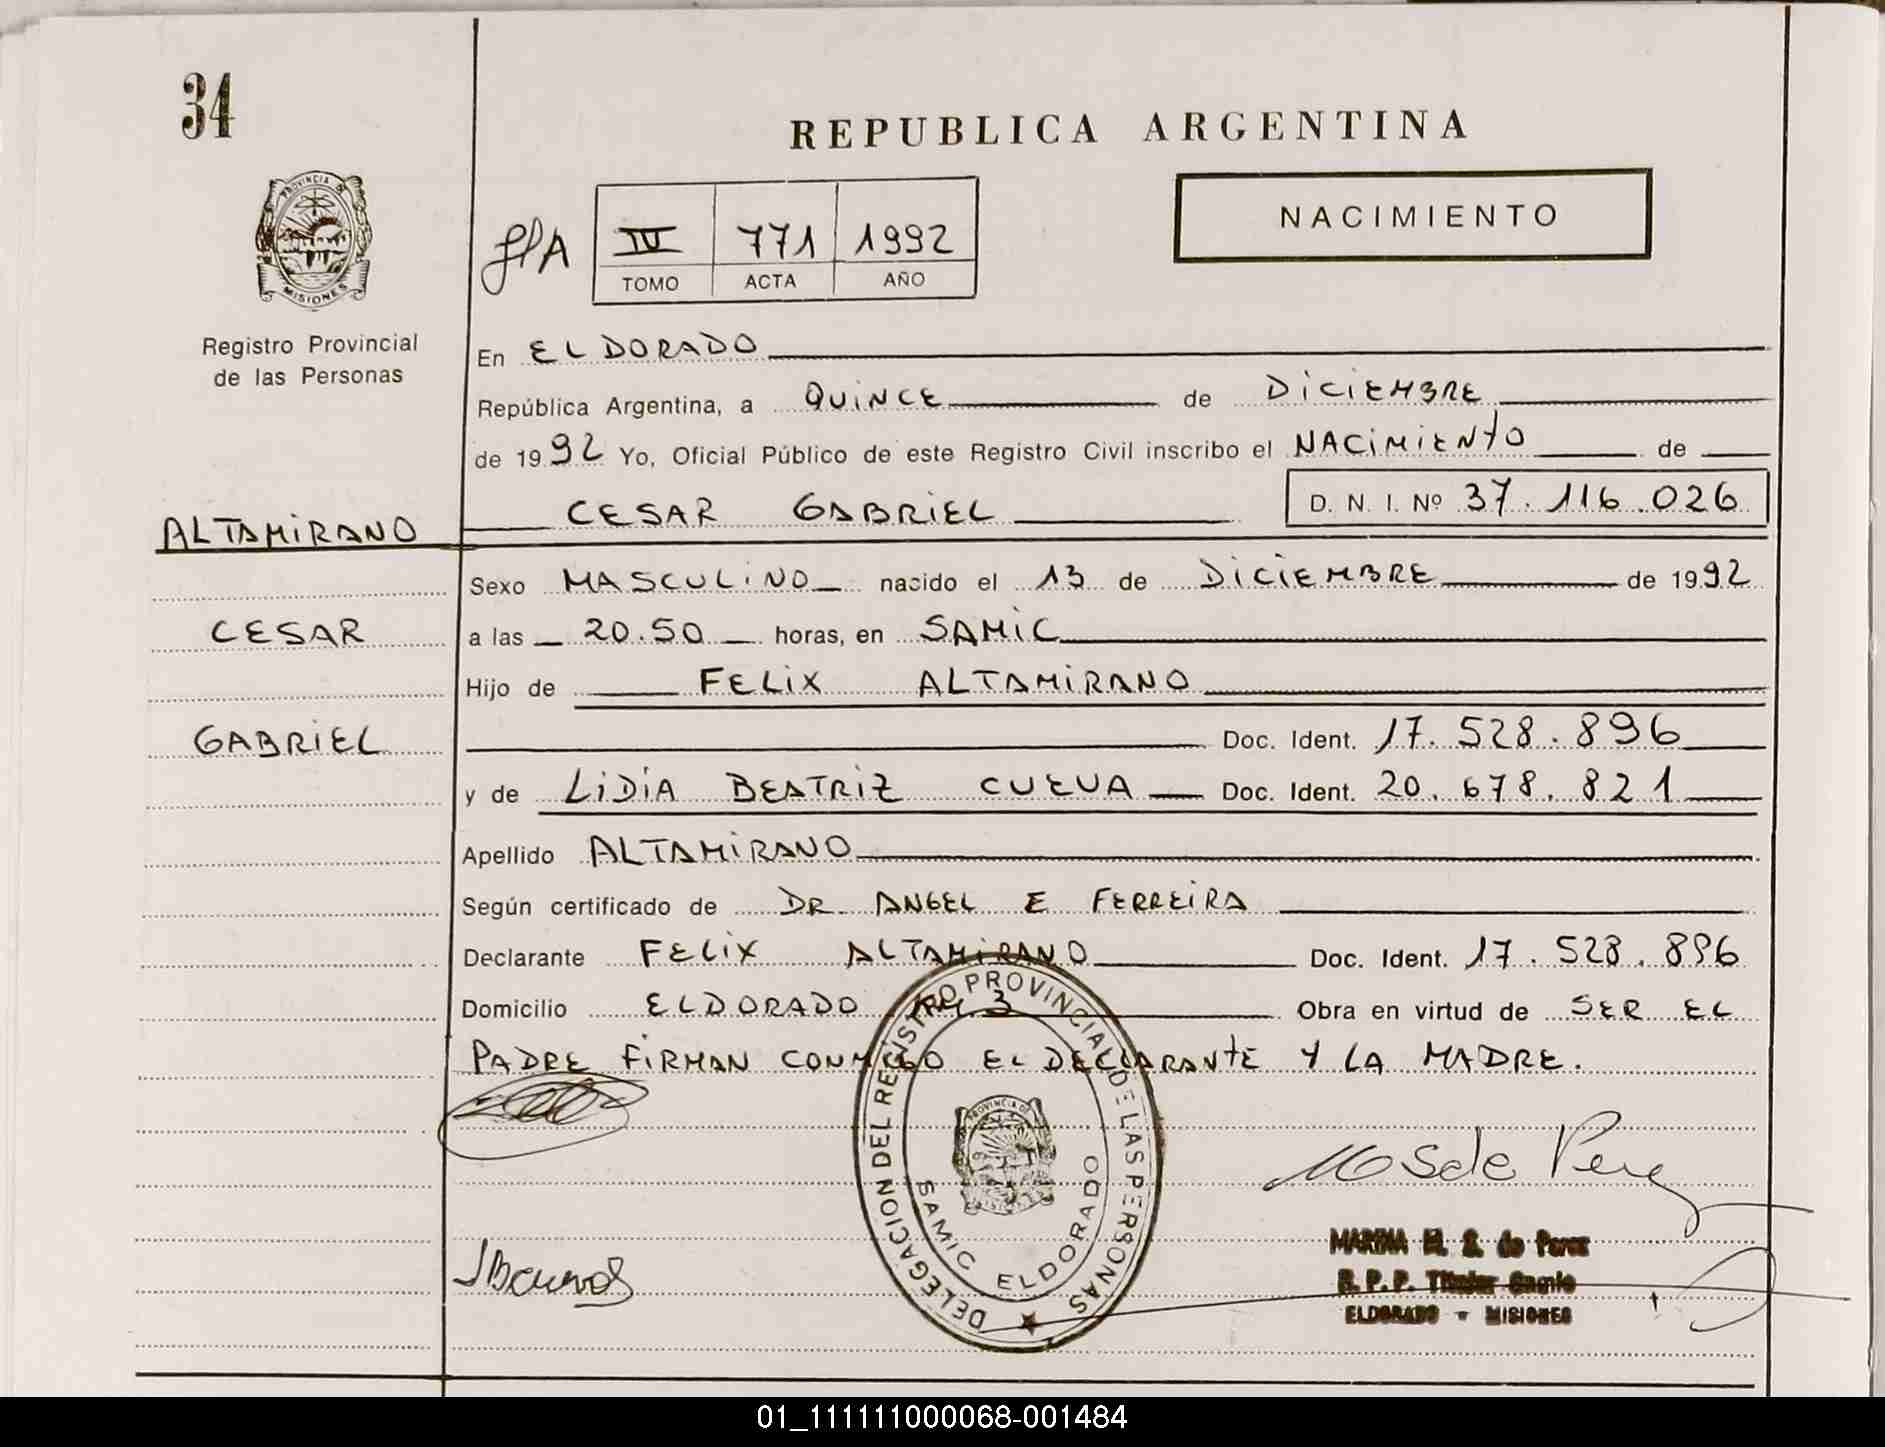 34
REPUBLICA ARGENTINA
PROVINCIA DE
MISIONES
NACIMIENTO
IV 771 1992
TOMO ACTA AÑO
Registro Provincial
de las Personas
En ELDORADO
República Argentina, a QUINCE de DICIEMBRE
de 1992 Yo, Oficial Público de este Registro Civil inscribo el NACIMIENTO de
CESAR GABRIEL D. N. I. Nº 37.116.026
ALTAMIRANO
Sexo MASCULINO nacido el 13 de DICIEMBRE de 1992
CESAR
a las 20.50 horas, en SAMIC
Hijo de FELIX ALTAMIRANO
GABRIEL
Doc. Ident. 17.528.896
y de LIDIA BEATRIZ CUEVA Doc. Ident. 20.678.821
Apellido ALTAMIRANO
Según certificado de DR. ANGEL E FERREIRA
Declarante FELIX ALTAMIRANO Doc. Ident. 17.528.896
Domicilio ELDORADO KM 3 Obra en virtud de SER EL
PADRE FIRMAN CONMIGO EL DECLARANTE Y LA MADRE.
DELEGACION DEL REGISTRO PROVINCIAL DE LAS PERSONAS
PROVINCIA DE
SAMIC ELDORADO
MARINA M. S. de Perez
R. P. P. Titular Samic
ELDORADO - MISIONES
01_111111000068-001484